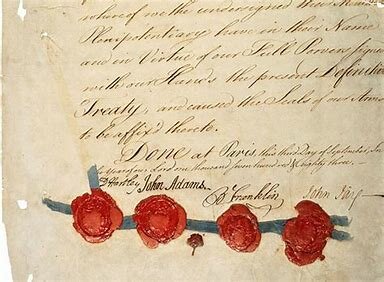 whereof we the undersigned their Ministers
Plenipotentiary have in their Name
and in Virtue of our Full Powers signed
with our Hands the present Definitive
Treaty, and caused the Seals of our Arms
to be affix'd thereto.
Done at Paris, this third Day of September, In
the Year of our Lord one thousand seven hundred & Eighty three.
D Hartley John Adams. B Franklin John Jay